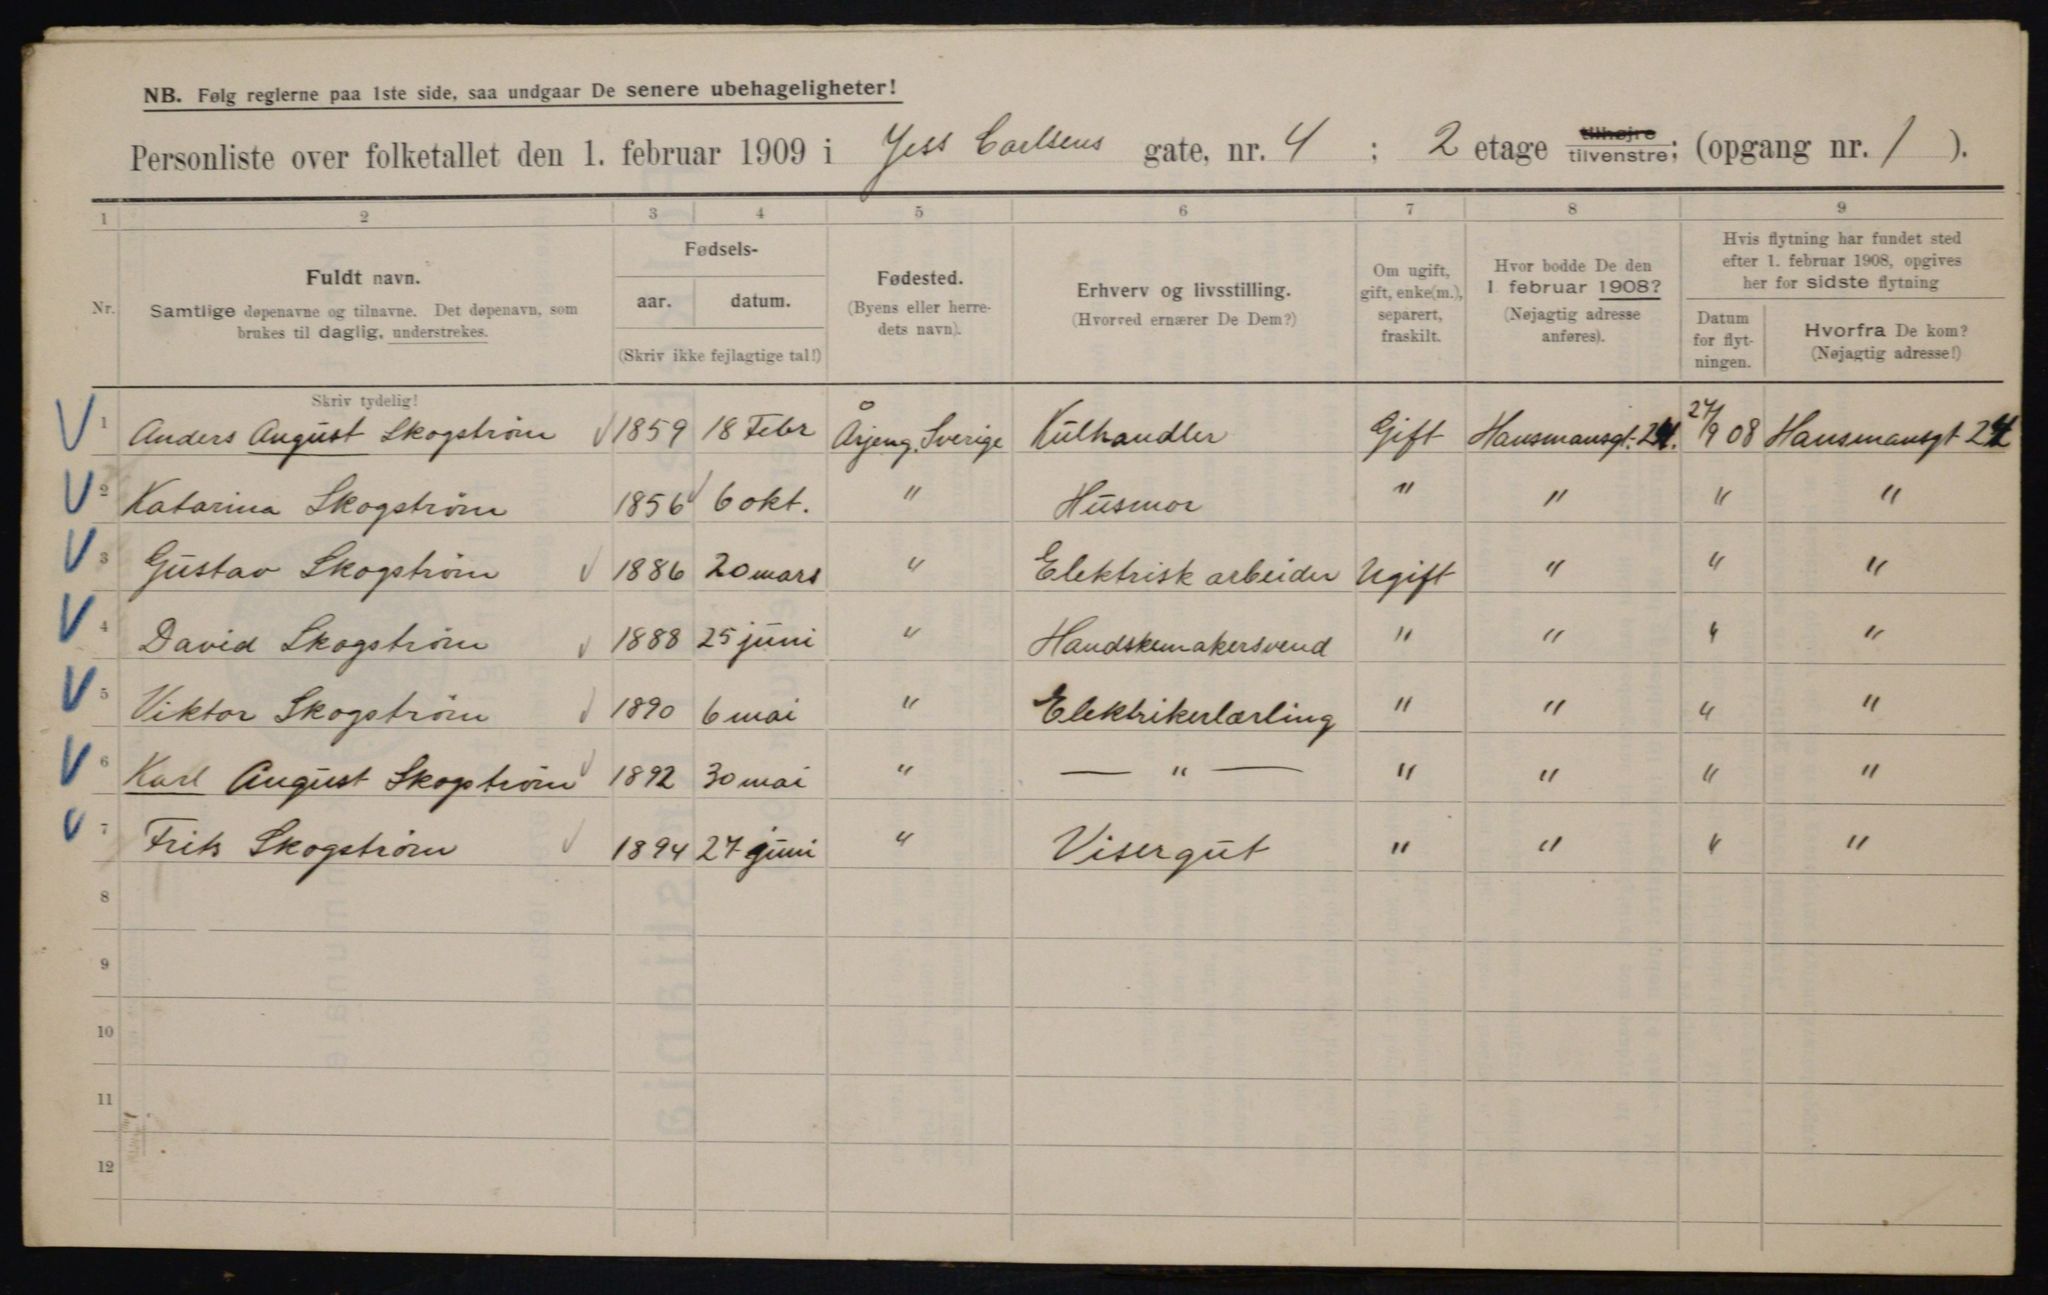 NB. Følg reglerne paa 1ste side, saa undgaar De senere ubehageligheter!
Personliste over folketallet den 1. februar 1909 i Jess Carlsens gate, nr. 4 ; 2 etage tilhøjre tilvenstre; (opgang nr. 1 ).
1 2 3 4 5 6 7 8 9
Nr.
Fuldt navn.
Samtlige døpenavne og tilnavne. Det døpenavn, som
brukes til daglig, understrekes.
Fødsels-
aar. datum.
(Skriv ikke fejlagtige tal!)
Fødested.
(Byens eller herre-
dets navn).
Erhverv og livsstilling.
(Hvorved ernærer De Dem?)
Om ugift,
gift, enke(m.),
separert,
fraskilt.
Hvor bodde De den
1. februar 1908?
(Nøjagtig adresse
anføres).
Hvis flytning har fundet sted
efter 1. februar 1908, opgives
her for sidste flytning
Datum
for flyt-
ningen.
Hvorfra De kom?
(Nøjagtig adresse!)
Skriv tydelig!
1 Anders August Skogstrøm 1859 18 Febr Årjeng. Sverige Kulhandler Gift Hausmansgt. 24. 27/9 08 Hausmansgt 24
2 Katarina Skogstrøm 1856 6 okt. " Husmor " " " "
3 Gustav Skogstrøm 1886 20 mars " Elektrisk arbeider Ugift " " "
4 David Skogstrøm 1888 25 juni " Handskemakersvend " " " "
5 Viktor Skogstrøm 1890 6 mai " Elektrikerlærling " " " "
6 Karl August Skogstrøm 1892 30 mai " — " — " " " "
7 Frits Skogstrøm 1894 27 juni " Visergut " " " "
8
9
10
11
12